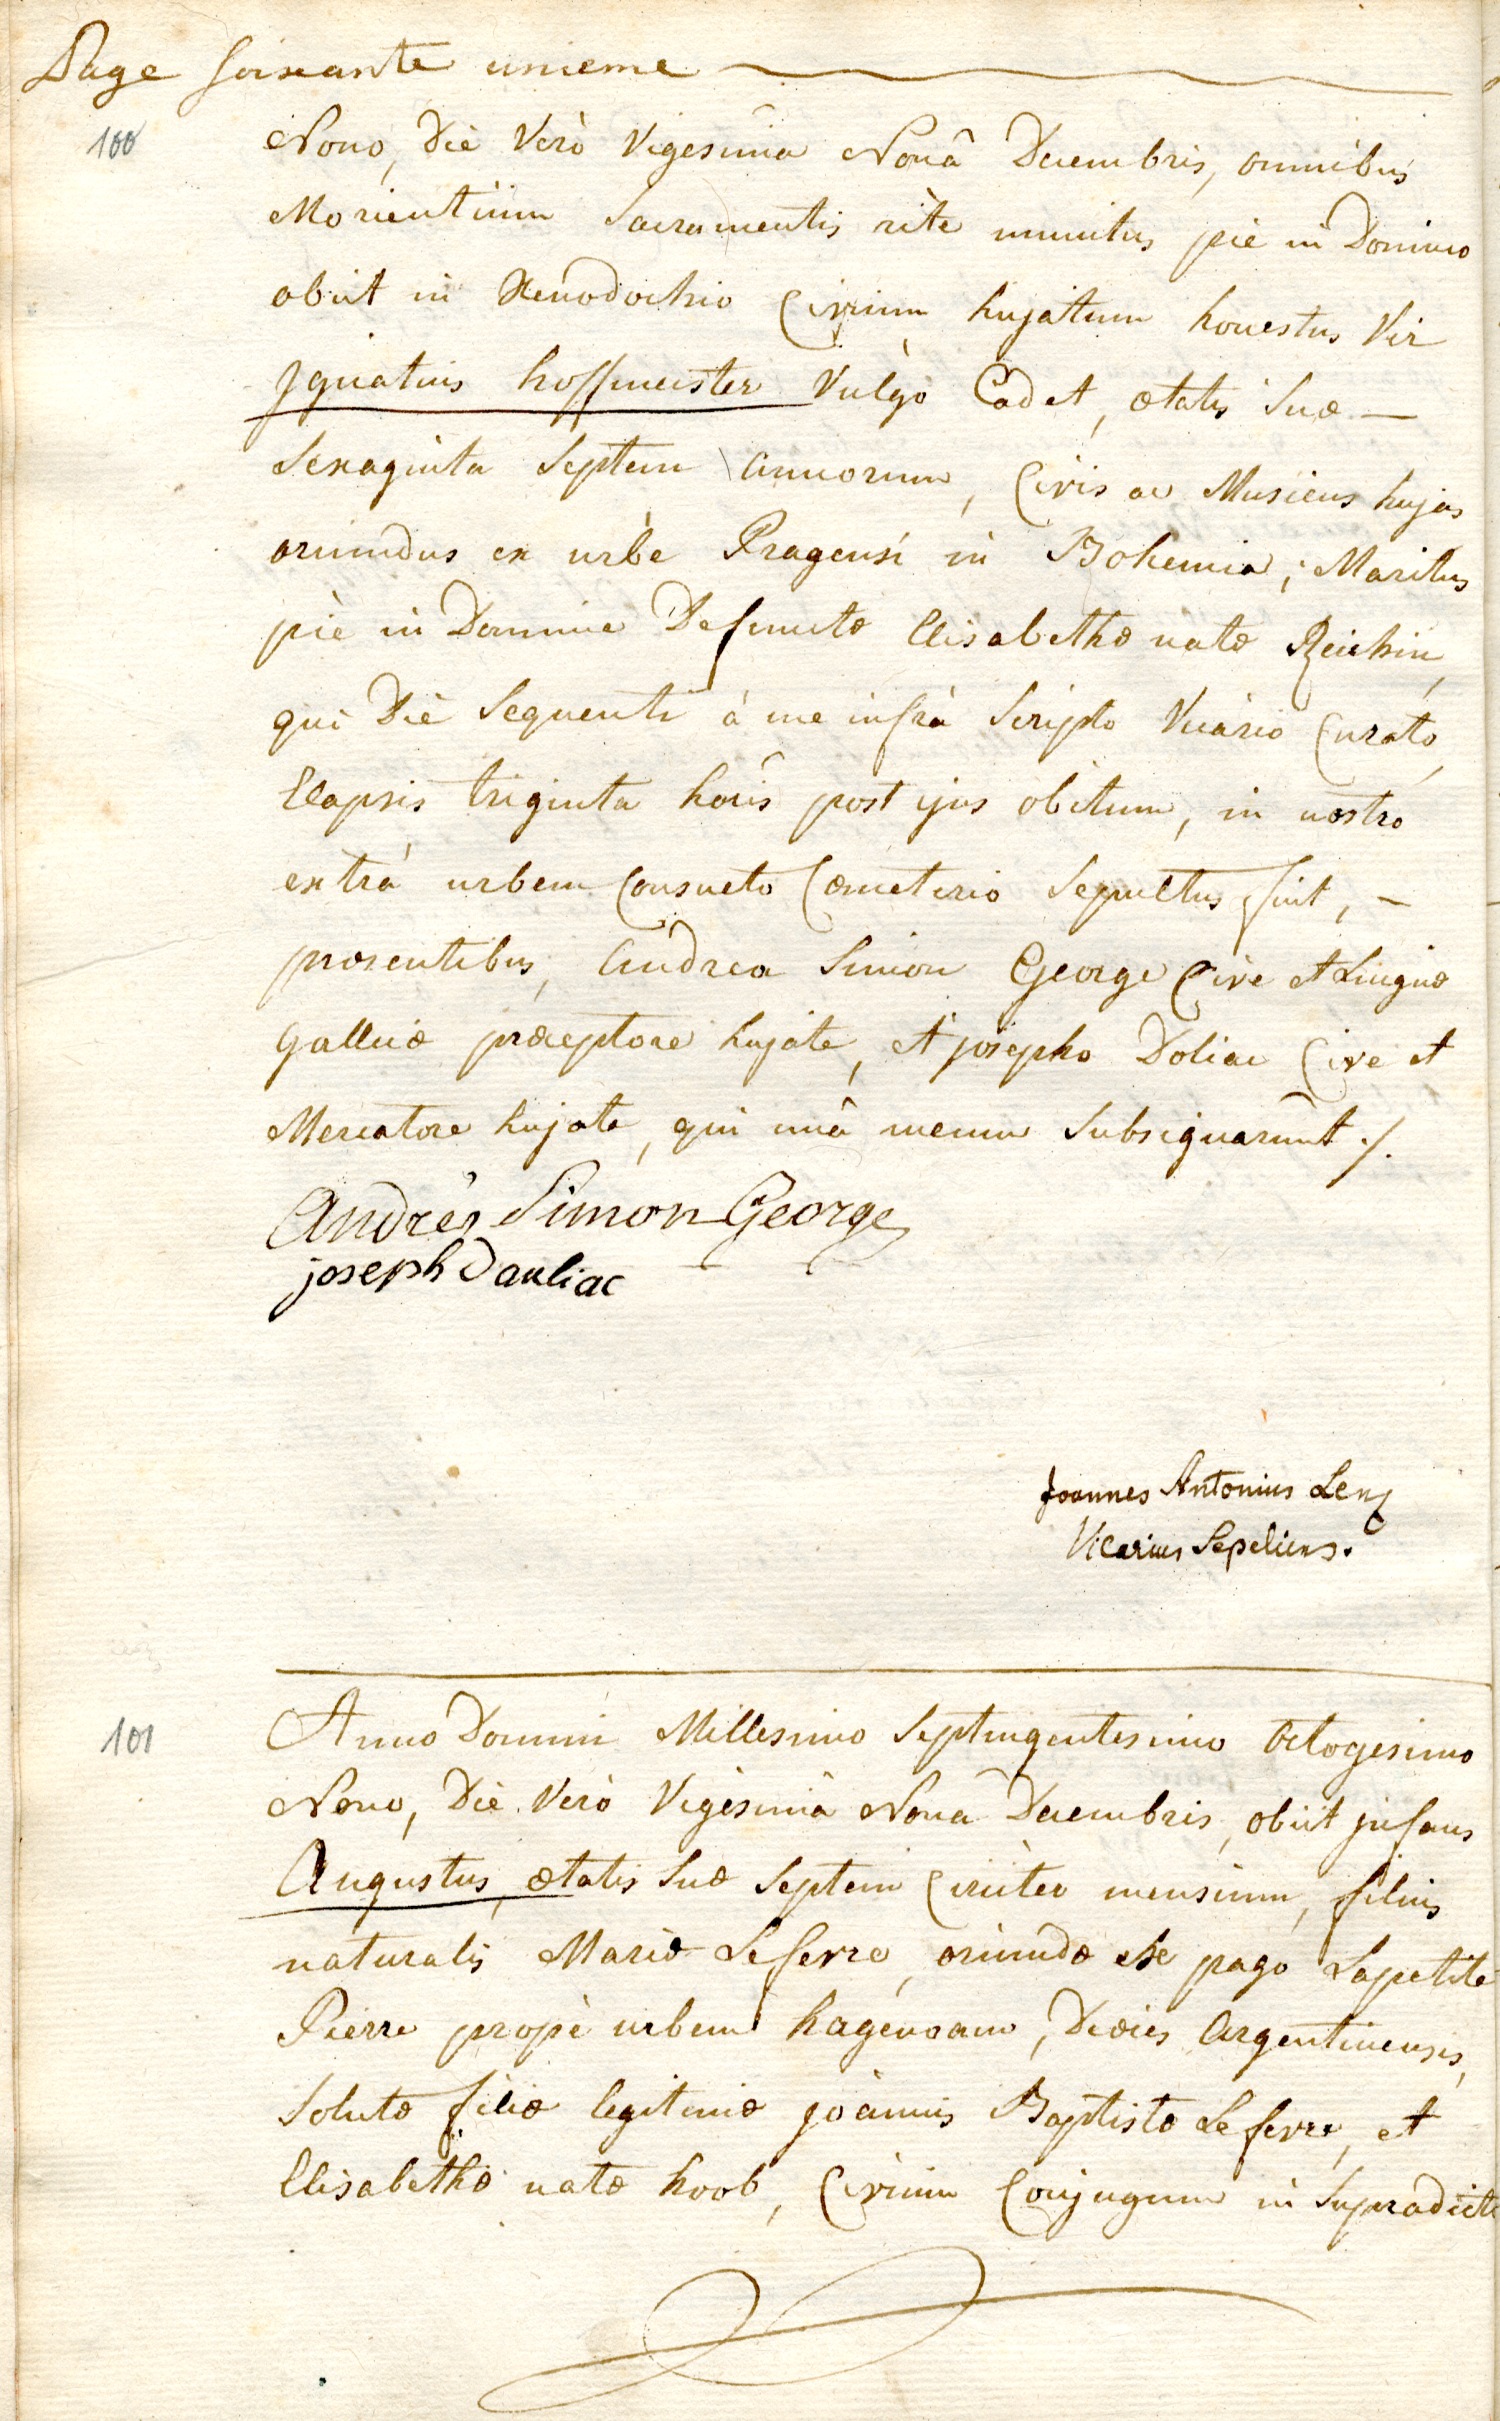 Page soixante unieme
100
Nono, Diè Verò Vigesimâ Nonâ Decembris, omnibus
Morientium Sacramentis ritè munitus piè in Domino
obiit in Xenodochio Civium hujatum honestus Vir
Jgnatius hoffmeister Vulgò Cadet, ætatis Suæ —
Sexaginta Septem annorum, Civis ac Musicus hujas
oriundus ex urbe Pragensi in Bohemia; Maritus
piè in Domino Defunctæ Elisabethæ natæ Reichin,
qui Diè Sequenti à me infrà Scripto Vicario Curato,
Elapsis triginta horis post ejus obitum, in nostro
extrà urbem Consueto Cœmeterio Sepultus fuit, —
præsentibus, Andrea Simon George Cive et Linguæ
Gallicæ præceptore hujate, et josepho Doliac Cive et
Mercatore hujate, qui unâ mecum Subsignarunt ./.
Andrès Simon George
joseph Dauliac
Joannes Antonius Lenz
Vicarius Sepeliens.
101
Anno Domini Millesimo Septingentesimo Octogesimo
Nono, Diè Verò Vigesimâ Nona Decembris, obiit jnfans
Augustus, ætatis Suæ Septem Circiter mensium, filius
naturalis Mariæ Lefevre, oriundæ ex pago Lapetite
Pierre propè urbem hagenoam, Diœcs Argentinensis,
Solutæ filiæ legitimæ joannis Baptistæ Lefevre, et
Elisabethæ natæ hoob, Civium Conjugum in Supradicto